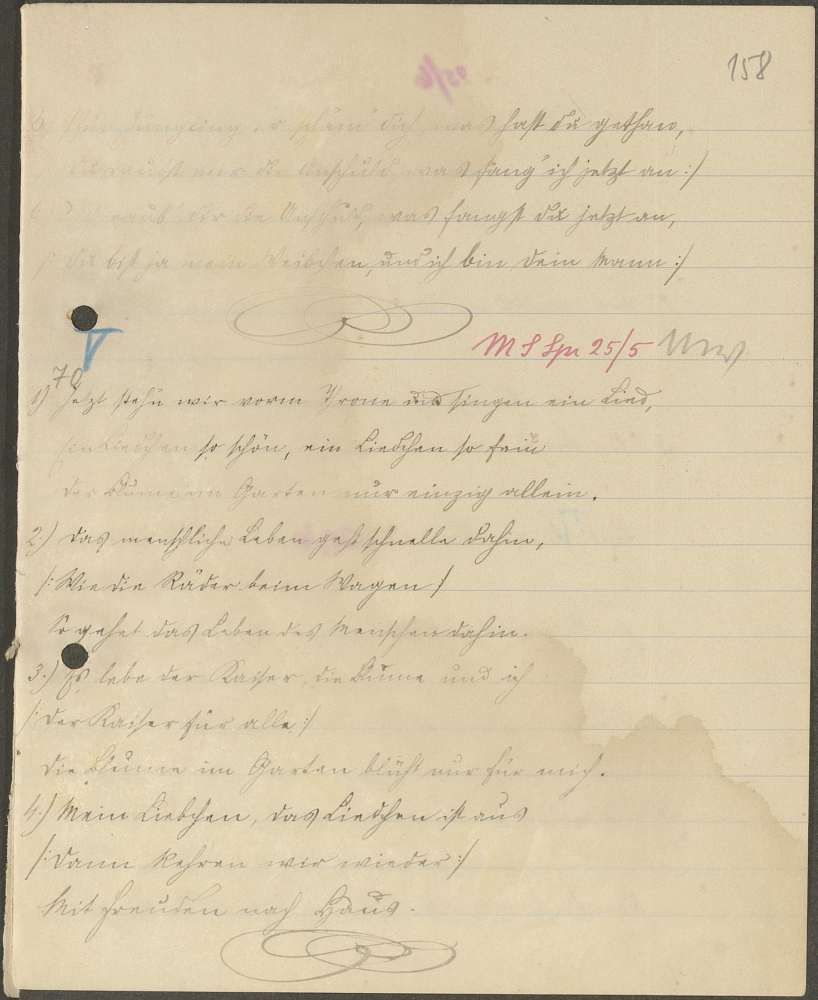 158
Jüngling, schäm' dich, was hast du gethan,
die Unschuld, was fang' ich jetzt an :/
die Unschuld, was fangst du jetzt an,
/: Du bist ja mein Weibchen, und ich bin dein Mann :/
M S Spr 25/5
70
1) Jetzt stehn wir vorm Trone und singen ein Lied,
Ein Liedchen so schön, ein Liedchen so fein
Der Blume im Garten nur einzig allein.
2.) Das menschliche Leben geht schnelle dahin,
/: Wie die Räder beim Wagen :/
So gehet das Leben des Menschen dahin.
3.) Es lebe der Kaiser die Blume und ich
/: Der Kaiser für alle :/
Die Blume im Garten blüht nur für mich.
4.) Mein Liebchen, das Liedchen ist aus
/: Dann kehren wir wieder :/
Mit Freuden nach Haus.